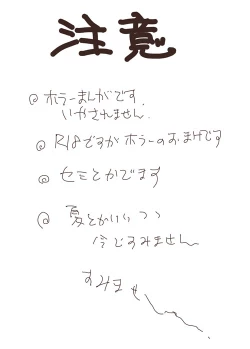 注意
◎ ホラーまんがです。
いやされません。
◎ R18ですが ホラーのおまけです
◎ セミとかでます
◎ 夏とかいいつつ
今ですみません
すみません